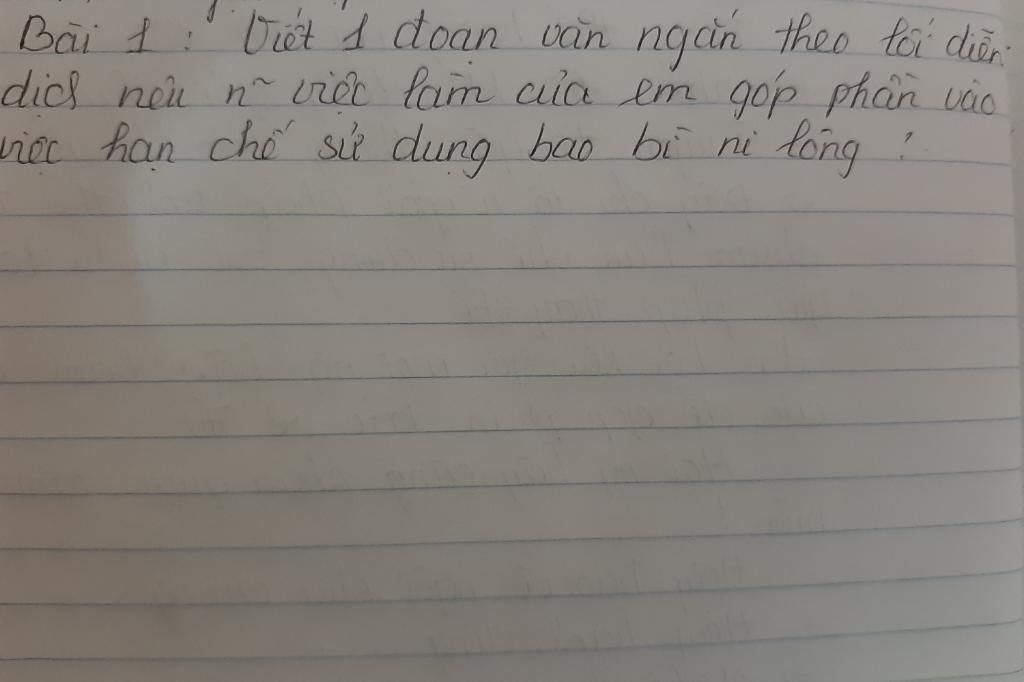 Bài 1 : Viết 1 đoạn văn ngắn theo lối diễn
dịch nêu n~ việc làm của em góp phần vào
việc hạn chế sử dụng bao bì ni lông ?